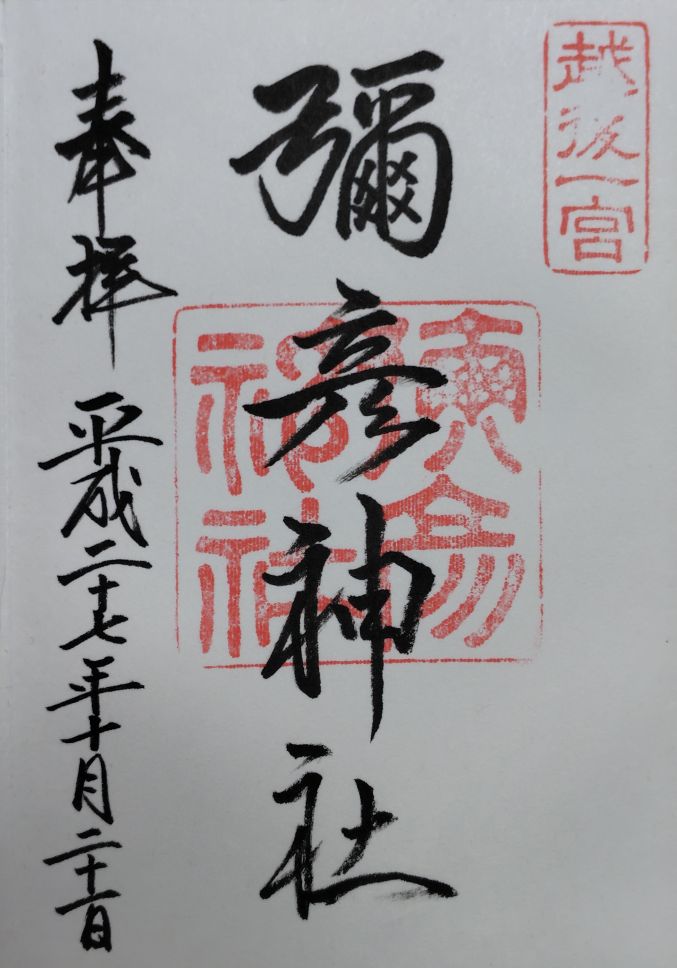 越後一宮
彌彦神社
奉拝 平成二十七年十月二十一日
神社